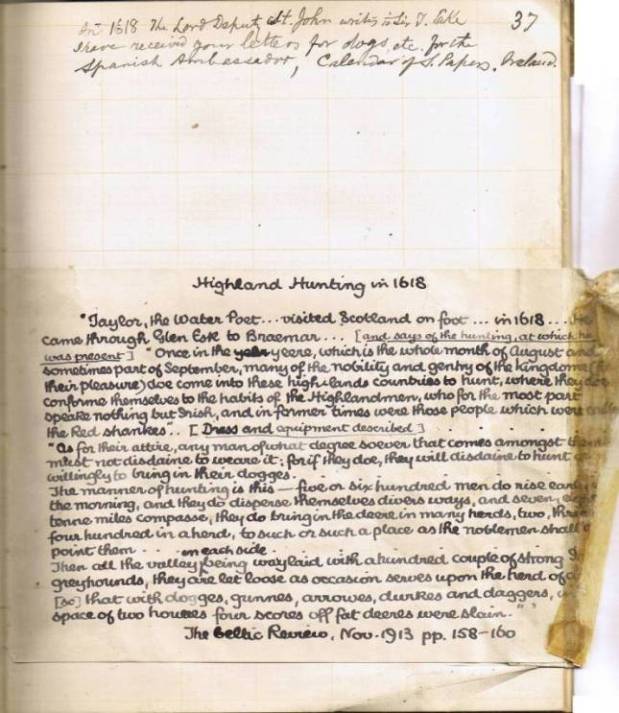 In 1618 The Lord Deputy St. John writes to Sir T. Lake
37
I have received your letters for dogs etc. for the
Spanish Ambassador, Calendar of S. Papers. Ireland.
Highland Hunting in 1618
"Taylor, the Water Poet... visited Scotland on foot ... in 1618 ... He
came through Glen Esk to Braemar... [and says of the hunting, at which he
was present] "Once in the year yeere, which is the whole month of August and
sometimes part of September, many of the nobility and gentry of the kingdome (
their pleasure) doe come into these high-lands countries to hunt, where they doe
conforme themselves to the habits of the Highlandmen, who for the most part
speake nothing but Irish, and in former times were those people which were
the Red shankes".. [Dress and equipment described]
"As for their attire, any man of what degree soever that comes amongst
must not disdaine to weare it; for if they doe, they will disdaine to hunt
willingly to bring in their dogges.
The manner of hunting is this — five or six hundred men do rise early
the morning, and they do disperse themselves divers ways, and seven,
tenne miles compasse, they do bring in the deere in many herds, two,
four hundred in a herd, to such or such a place as the noblemen shall
point them . . .
on each side
Then all the valley being waylaid with a hundred couple of strong
greyhounds, they are let loose as occasion serves upon the herd of
[so] that with dogges, gunnes, arrowes, durkes and daggers,
space of two houres four scores off fat deeres were slain."
The Celtic Review, Nov. 1913 pp. 158-160